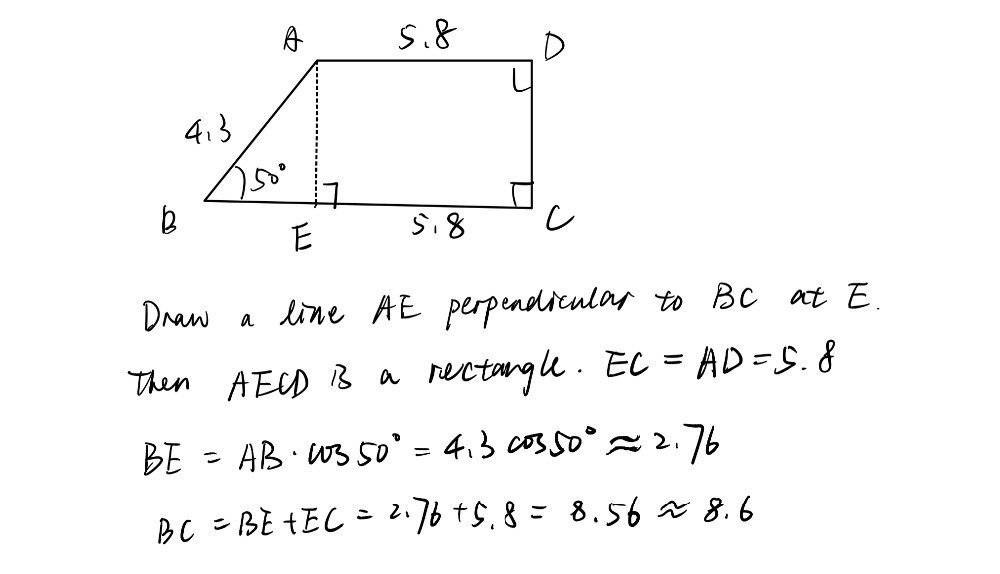 A 5.8 D
4.3
50°
B E 5.8 C
Draw a line AE perpendicular to BC at E.
Then AECD is a rectangle. EC = AD = 5.8
BE = AB · cos 50° = 4.3 cos 50° ≈ 2.76
BC = BE + EC = 2.76 + 5.8 = 8.56 ≈ 8.6